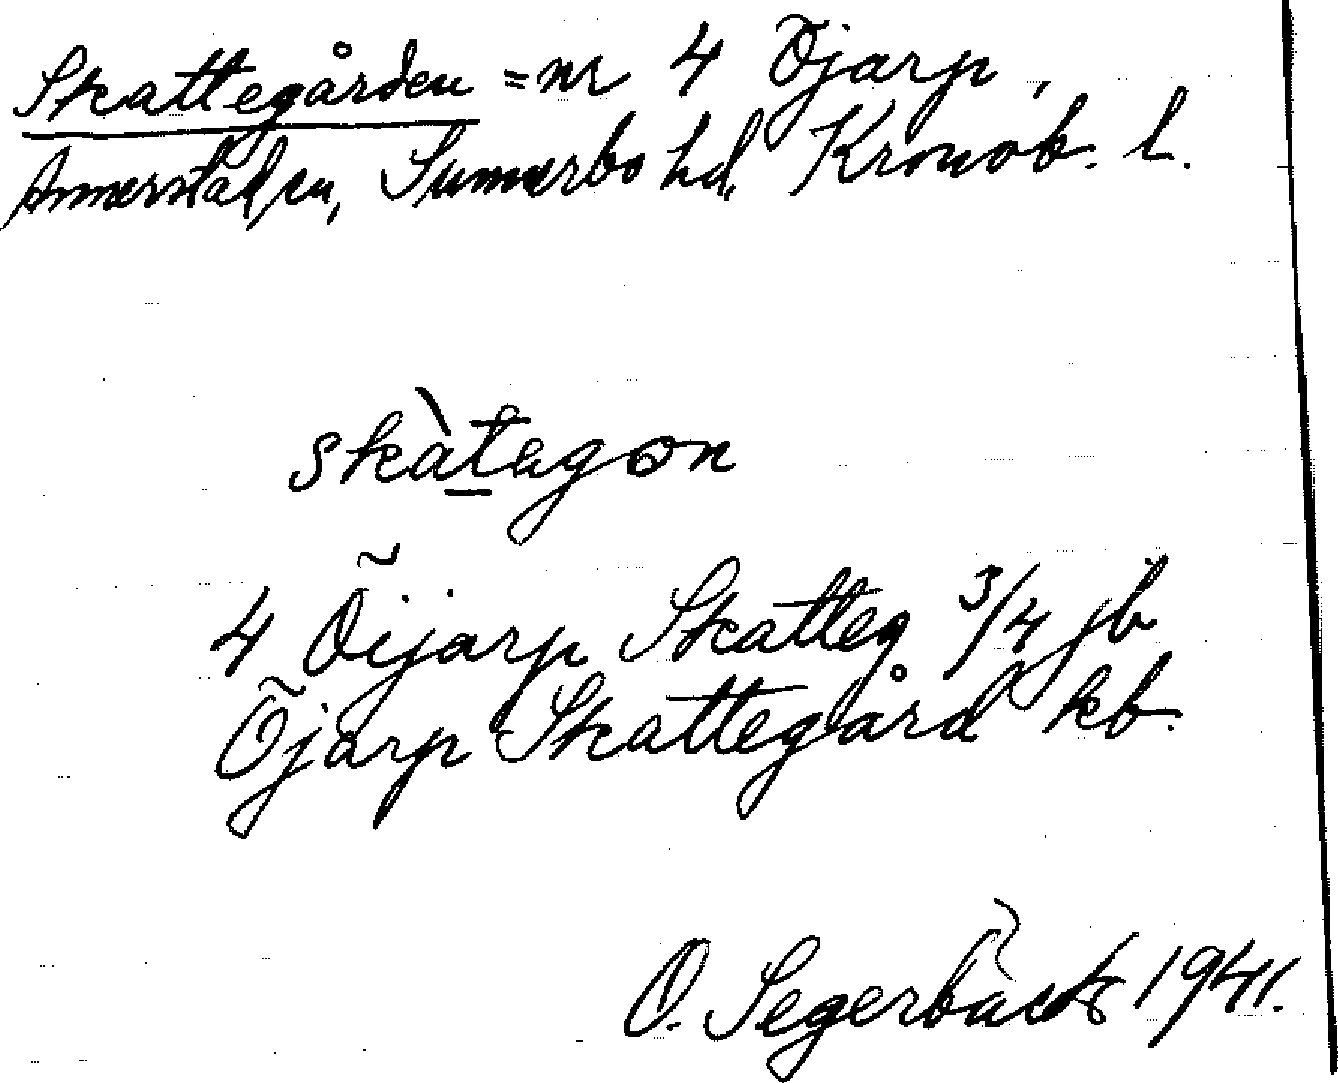 Skattegården = nr 4 Öjarp,
Annerstad sn, Sunnerbo hd, Kronob. l.
skàtagon
4 Öijarp Skatteg 3/4 jb
Öjarp Skattegård kb.
O. Segerbäck 1941.